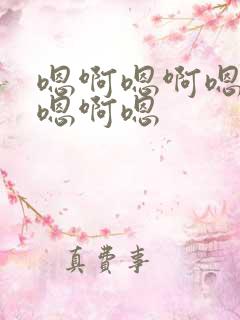 嗯啊嗯啊嗯
嗯啊嗯
真费事